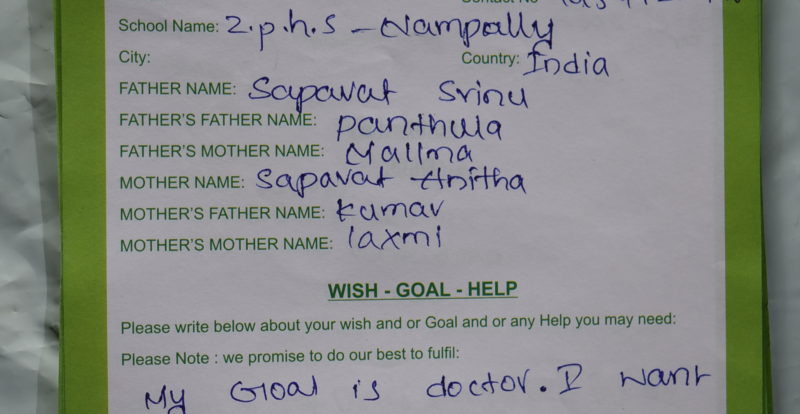 School Name: Z.p.h.s - Nampally
City: Country: India
FATHER NAME: Sapavat Srinu
FATHER'S FATHER NAME: panthula
FATHER'S MOTHER NAME: Mallma
MOTHER NAME: Sapavat Anitha
MOTHER'S FATHER NAME: kumar
MOTHER'S MOTHER NAME: laxmi
WISH - GOAL - HELP
Please write below about your wish and or Goal and or any Help you may need:
Please Note : we promise to do our best to fulfil:
My Goal is doctor. I want